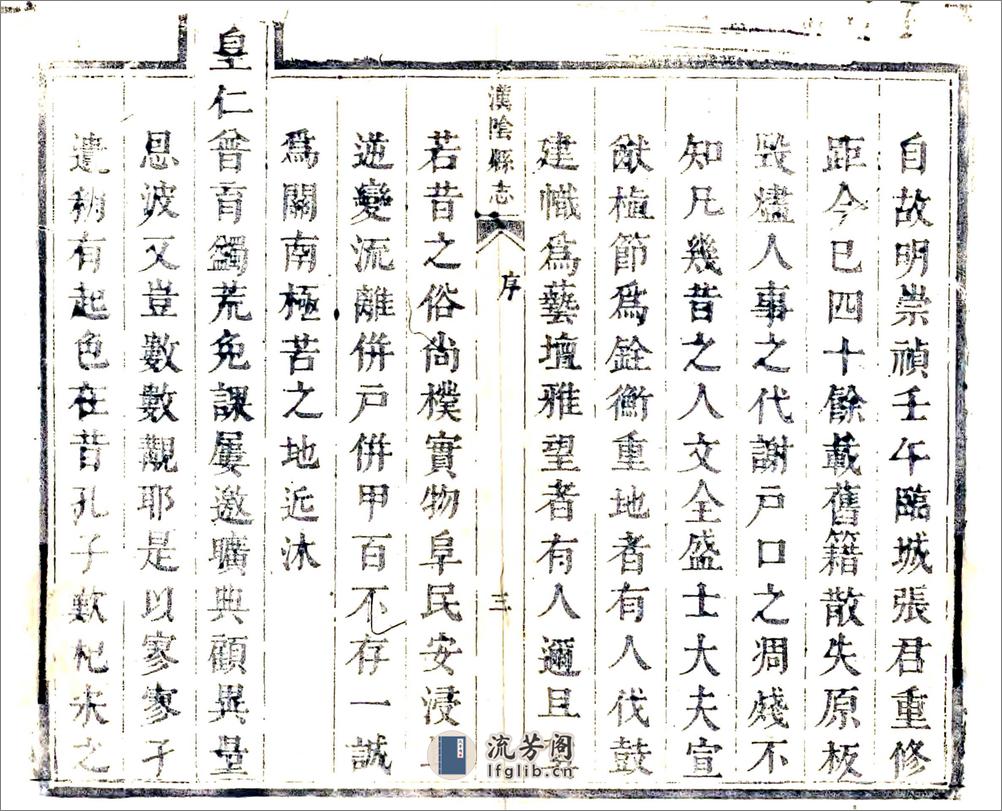 自故明崇禎壬午臨城張君重修
距今已四十餘載舊籍散失原板
毀燼人事之代謝戶口之凋殘不
知凡幾昔之人文全盛士大夫宣
猷植節為銓衡重地者有人伐鼓
建幟為藝壇雅望者有人邇且
漢陰縣志
序
三
若昔之俗尚樸實物阜民安浸
逆變流離併戶併甲百不存一誠
為關南極苦之地近沐
皇仁普育蠲荒免課屢邀曠典顧異量
恩波又豈數數覯耶是以寥寥孑
遺稍有起色在昔孔子歎杞宋之
流芳阁
lfglib.cn